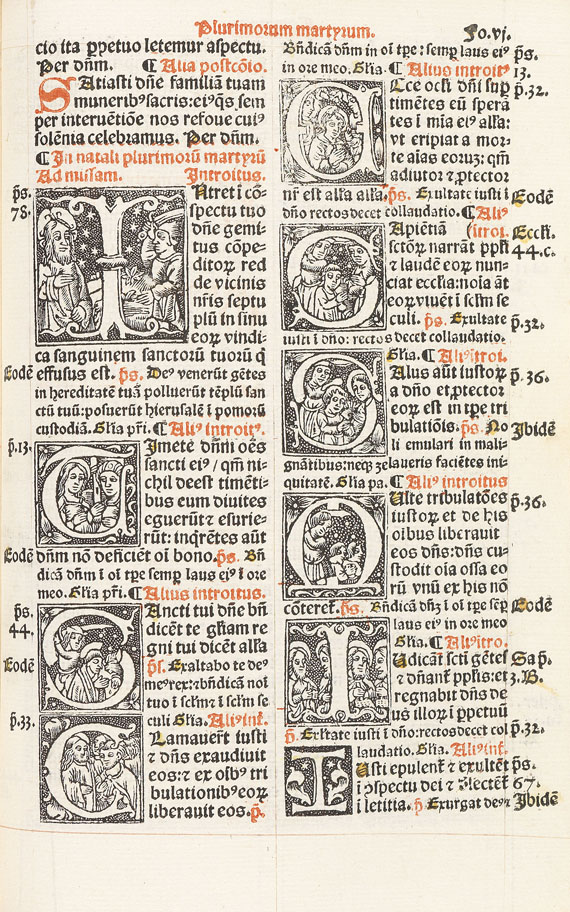 Plurimorum martyrum. Fo.vj.
cio ita ꝑpetuo letemur aspectu.
Per dñm. ¶ Alia postcõio.
SAtiasti dñe familiã tuam
muneribꝰ sacris: eiꝰq̃s sem
per interuẽtiõe nos refoue cuiꝰ
solẽnia celebramus. Per dñm.
¶ In natali plurimorũ martyrũ
Ad missam. Introitus.
p̃s. INtret ĩ cõ-
78. spectu tuo
dñe gemi-
tus cõpe-
ditoꝝ red
de vicinis
nr̃is septu
plũ in sinu
eoꝝ vindi-
ca sanguinem sanctorũ tuorũ q̃
Eodẽ effusus est. p̃s. Deꝰ venerũt gẽtes
in hereditatẽ tuã polluerũt tẽplũ san
ctũ tuũ: posuerũt hierusalẽ ĩ pomorũ
custodiã. Gl̃ia pr̃i. ¶ Aliꝰ introitꝰ.
p̃.13. TImete dñm oẽs
sancti eiꝰ / qm̃ ni-
chil deest timẽti-
bus eum diuites
eguerũt ⁊ esurie-
rũt: inq̃rẽtes aũt
Eodẽ dñm nõ deficiẽt oĩ bono. p̃s. Bñ
dicã dñm ĩ oĩ tp̃e semꝑ laus eiꝰ ĩ ore
meo. Gl̃ia pr̃i. ¶ Alius introitus.
p̃s. SAncti tui dñe bñ
44. dicẽt te gl̃iam re
gni tui dicẽt all̃a
Eodẽ p̃s. Exaltabo te deꝰ
meꝰ rex: ⁊ bñdicã noĩ
tuo ĩ scl̃m ⁊ ĩ scl̃m se
culi Gl̃ia. Aliꝰ int̃.
p̃.33. CLamauer̃t iusti
⁊ dñs exaudiuit
eos: ⁊ ex oĩbꝰ tri
bulationibꝰ eoꝝ
liberauit eos. p̃.
Bñdicã dñm in oĩ tp̃e: semꝑ laus eiꝰ p̃s.
in ore meo. Gl̃ia. ¶ Alius introitꝰ 13.
ECce ocl̃i dñi suꝑ p̃.32.
timẽtes eũ sperã
tes ĩ mĩa eiꝰ all̃a:
vt eripiat a mor-
te aĩas eoruʒ: qm̃
adiutor ⁊ ꝓtector
nr̃ est all̃a all̃a. p̃s. Exultate iusti ĩ Eodẽ
dño rectos decet collaudatio. ¶ Aliꝰ
SApiẽtiã (ĩtroi. Eccl̃i.
sctõꝝ narrãt ppl̃i 44.c.
⁊ laudẽ eoꝝ nun-
ciat eccl̃ia: noĩa ãt
eoꝝ viuẽt ĩ scl̃m se
culi. p̃s. Exultate p̃.32.
iusti ĩ dño: rectos decet collaudatio.
Gl̃ia. ¶ Aliꝰ ĩtroi.
SAlus aũt iustoꝝ p̃.36.
a dño et ꝓtector
eoꝝ est in tp̃e tri
bulatiõis. p̃s. No Ibidẽ
li emulari in mali-
gnãtibus: neqʒ zelaueris faciẽtes ini-
quitatẽ. Gl̃ia pa. ¶ Aliꝰ introitus
MUlte tribulatões p̃.36.
iustoꝝ et de his
oĩbus liberauit
eos dñs: dñs cu-
stodit oĩa ossa eo
rũ vnũ ex his nõ
cõteret̃. p̃s. Bñdicã dñʒ ĩ oĩ tp̃e sẽꝑ Eodẽ
laus eiꝰ in ore meo
Gl̃ia. ¶ Aliꝰ ĩtro.
IUdicãt sctĩ gẽtes Sap̃.
⁊ dñant̃ ppl̃is: et 3.B.
regnabit dñs de
us illoꝝ ĩ ꝑpetuũ
p̃. Exltate iusti ĩ dño: rectos decet col p̃.32.
laudatio. Gl̃ia. Aliꝰ int̃.
IUsti epulent̃ ⁊ exultẽt p̃s.
ĩ ꝯspectu dei ⁊ delectẽt̃ 67.
ĩ letitia. p̃ Exurgat deꝰ ⁊ Ibidẽ